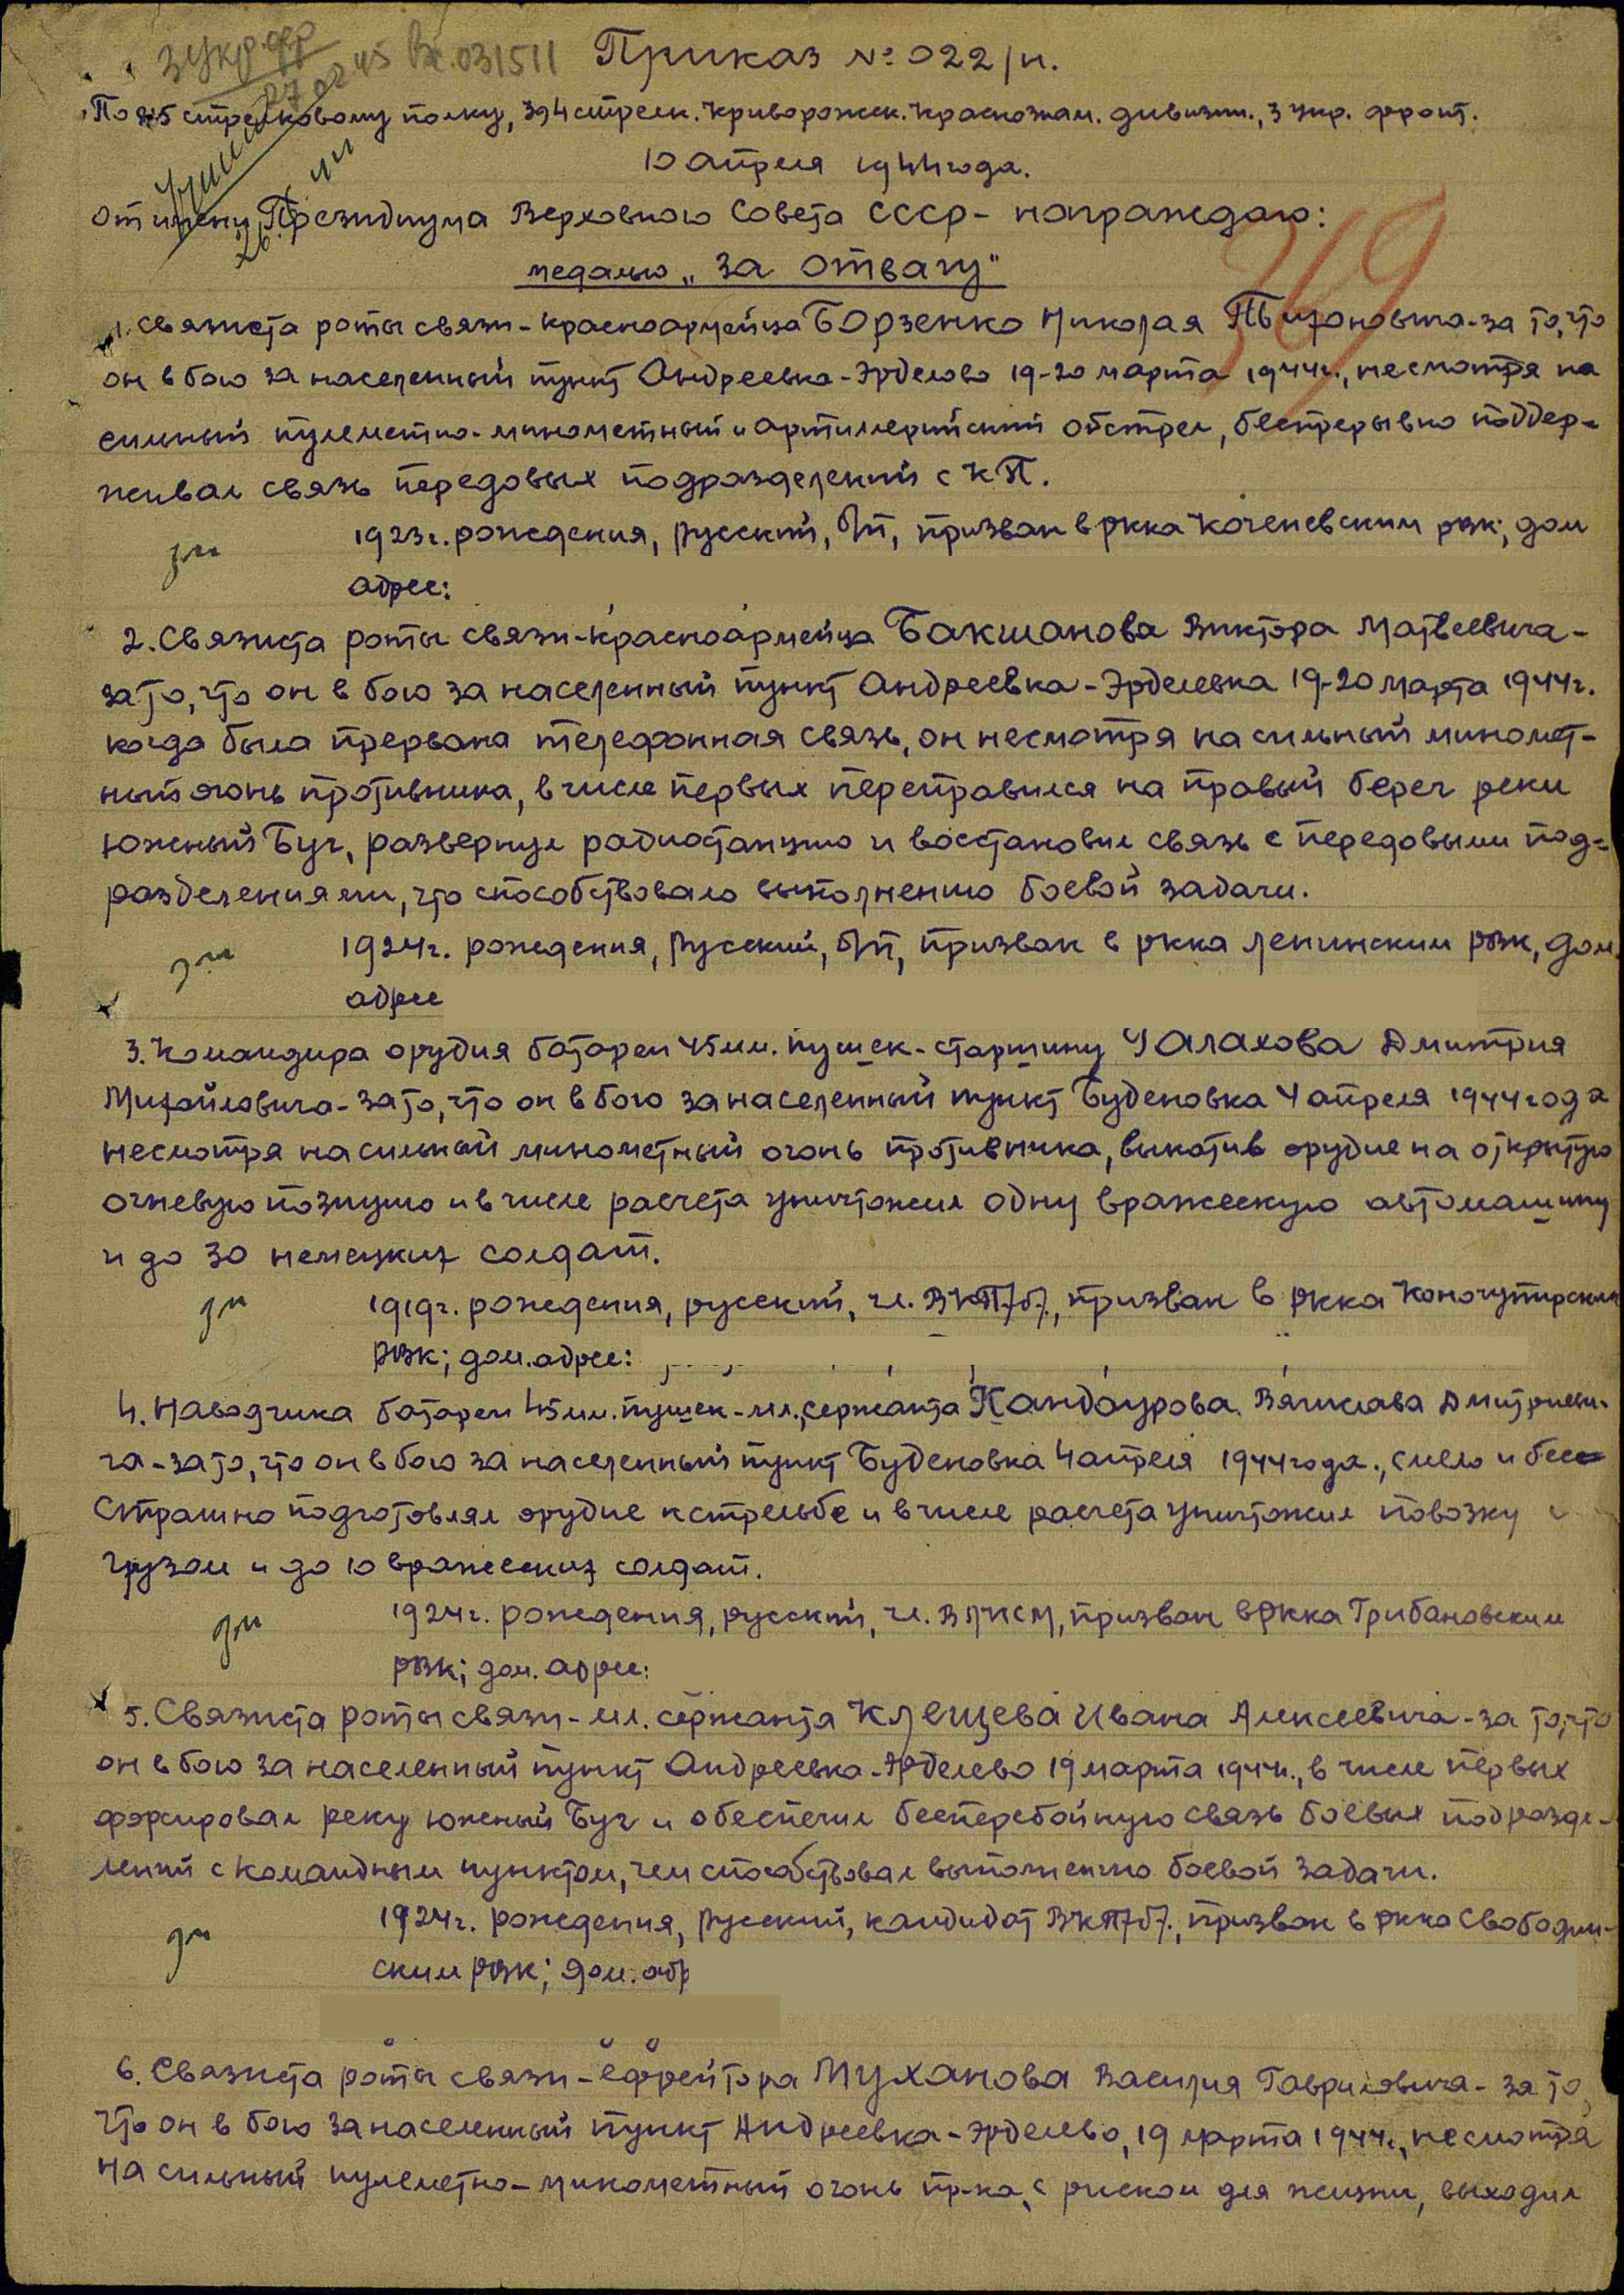 3 укр. фр
27 02 45 Вх. 031511
Приказ № 022/н.
По стрелковому полку, 394 стрелк. Криворожск. Краснознам. дивизии., 3 укр. фронт.
10 апреля 1944 года.
От имени Президиума Верховного Совета СССР - награждаю:
369
медалью „За отвагу"
1. Связиста роты связи - красноармейца Борзенко Николая Тихоновича - за то, что
он в бою за населенный пункт Андреевка-Эрделево 19-20 марта 1944г., несмотря на
сильный пулеметно-минометный и артиллерийский обстрел, беспрерывно поддер-
живал связь передовых подразделений с КП.
1923г. рождения, русский, б/п, призван в РККА Коченевским рвк; дом
адрес:
2. Связиста роты связи - красноармейца Бакшанова Виктора Матвеевича -
за то, что он в бою за населенный пункт Андреевка-Эрделевка 19-20 марта 1944г.
когда была прервана телефонная связь, он несмотря на сильный миномет-
ный огонь противника, в числе первых переправился на правый берег реки
Южный Буг, развернул радиостанцию и востановил связь с передовыми под-
разделениями, что способствовало выполнению боевой задачи.
1924г. рождения, русский, б/п, призван в РККА Ленинским рвк, дом.
адрес
3. Командира орудия батареи 45мм. пушек - старшину Галахова Дмитрия
Михайловича - за то, что он в бою за населенный пункт Буденовка 4 апреля 1944 года
несмотря на сильный минометный огонь противника, выкотив орудие на открытую
огневую позицию и в числе расчета уничтожил одну вражескую автомашину
и до 30 немецких солдат.
1919г. рождения, русский, чл. ВКП/б/, призван в РККА
рвк; дом. адрес:
4. Наводчика батареи 45мм. пушек - мл. сержанта Кандаурова Вячислава Дмитриеви-
ча - за то, что он в бою за населенный пункт Буденовка 4 апреля 1944 года., смело и бес-
страшно подготовлял орудие к стрельбе и в числе расчета уничтожил повозку с
грузом и до 10 вражеских солдат.
1924г. рождения, русский, чл. ВЛКСМ, призван в РККА Грибановским
рвк; дом. адрес:
5. Связиста роты связи - мл. сержанта Клещева Ивана Алексеевича - за то, что
он в бою за населенный пункт Андреевка-Эрделево 19 марта 1944г., в числе первых
форсировал реку Южный Буг и обеспечил бесперебойную связь боевых подразде-
лений с командным пунктом, чем способствовал выполнению боевой задачи.
1924г. рождения, русский, кандидат ВКП/б/, призван в РККА Свободин-
ским рвк; дом. адр
6. Связиста роты связи - ефрейтора Муханова Василия Гавриловича - за то,
что он в бою за населенный пункт Андреевка-Эрделево, 19 марта 1944г., несмотря
на сильный пулеметно-минометный огонь пр-ка, с риском для жизни, выходил